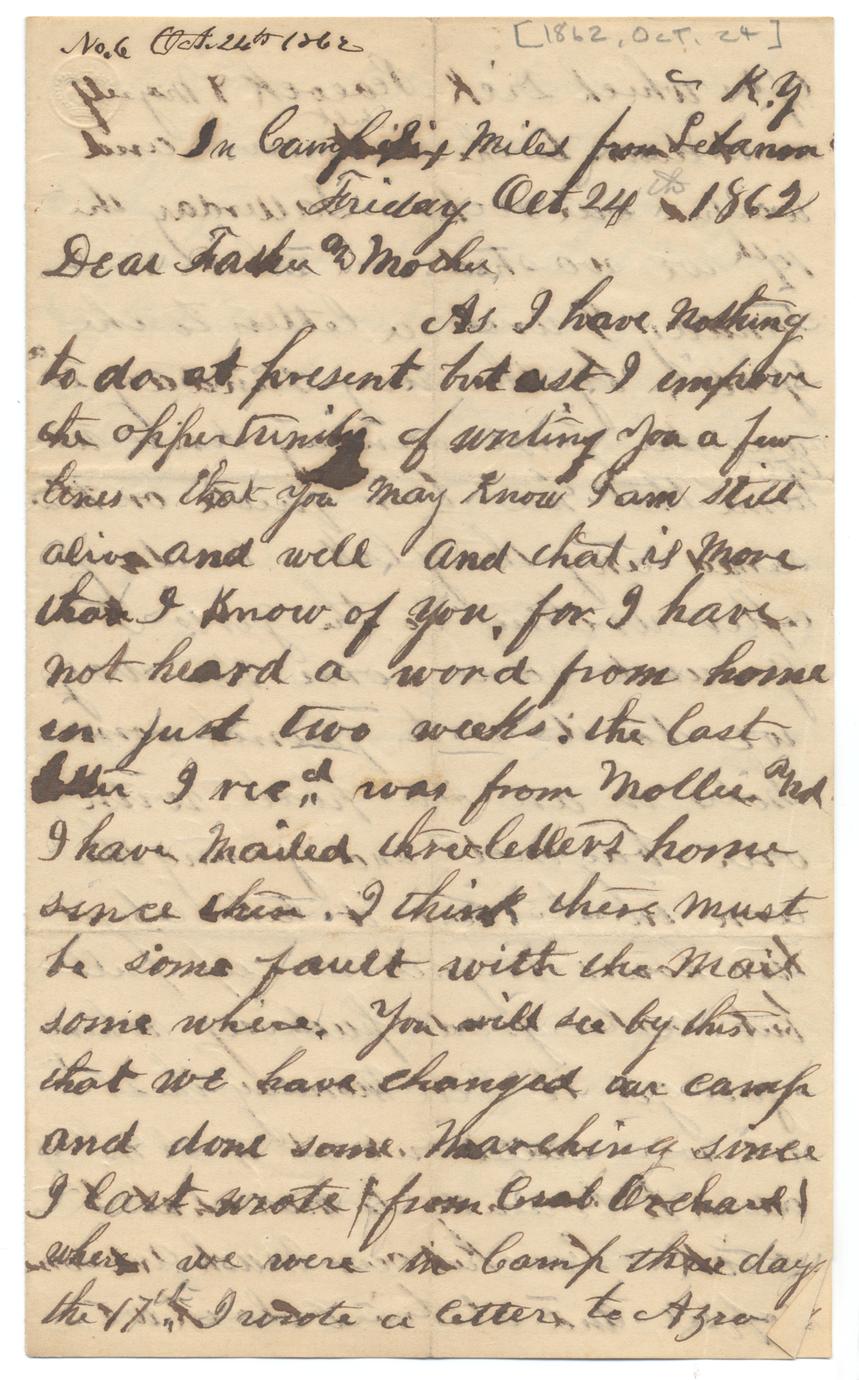 No. 6 Oct. 24th 1862
[1862, Oct. 24]
K.Y
In Camp six Miles from Lebanon
Friday Oct. 24th 1862
Dear Father and Mother
As I have nothing
to do at present but rest I improve
the oppertunity of writing you a few
lines that you may know I am still
alive and well and that is More
than I know of you, for I have
not heard a word from home
in just two weeks. the last
letter I recd was from Mollie. and
I have Mailed three letters home
since then. I think there must
be some fault with the Mail
some where. You will see by this
that we have changed our camp
and done some Marching since
I last wrote (from Crab Orchard)
where we were in Camp three days
the 17th I wrote a letter to Azro